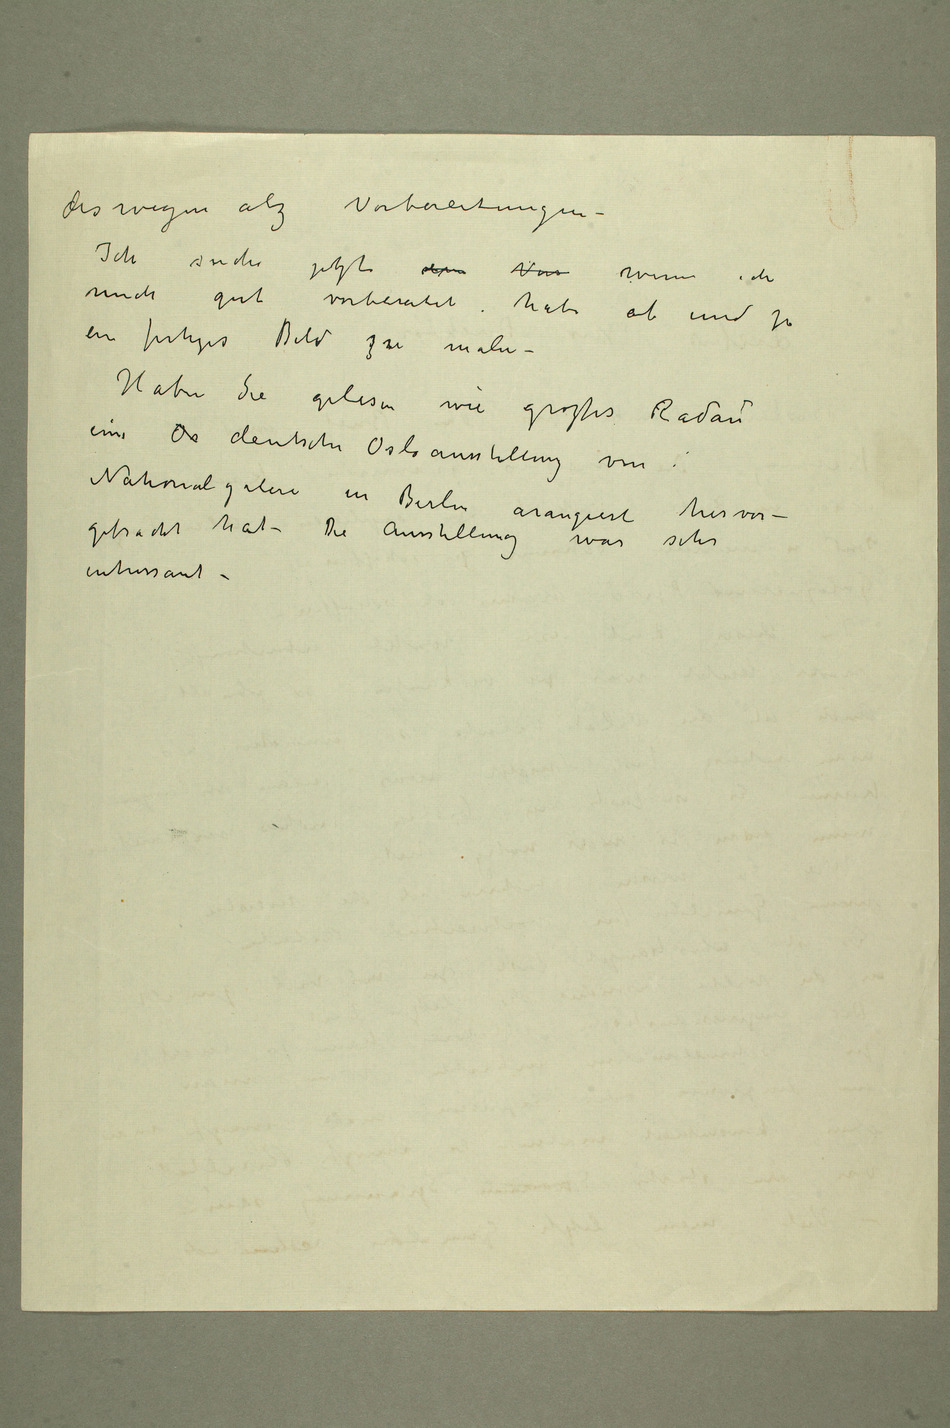 deswegen alz Vorbereitungen –
Ich suche jetzt wenn ich
mich gut vorbereitet habe ab und zu
ein fertiges Bild zu malen –
Haben Sie gelesen wie groszes Radau
eine Os deutsche Osloausstellung von
Nationalgalerie in Berlin arangiert hervor–
gebracht hat – Die Ausstellung war sehr
intressant –